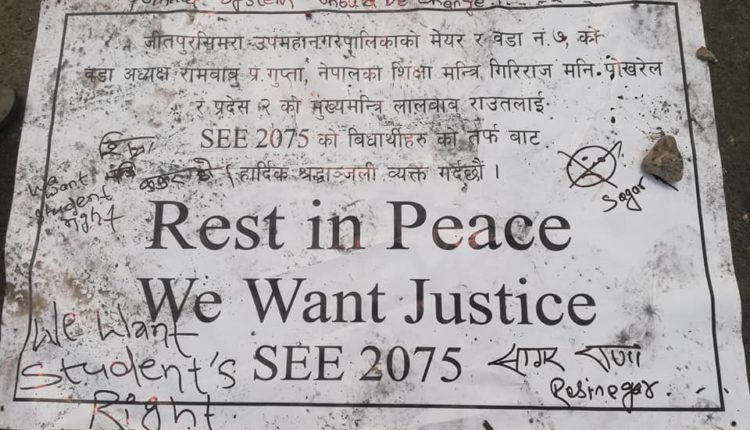 system should be change
जीतपुरसिमरा उपमहानगरपालिकाको मेयर र वडा नं.७, को
वडा अध्यक्ष रामबाबु प्र.गुप्ता, नेपालका शिक्षा मन्त्रि गिरिराज मनि.पोखरेल
र प्रदेस २ को मुख्यमन्त्रि लालबाबु राउतलाई
SEE 2075 को बिधार्थीहरु को तर्फ बाट
हार्दिक श्रद्धाञ्जली व्यक्त गर्दछौं ।
We want student right
Sagar
Rest in Peace
We Want Justice
SEE 2075
We Want
Student's
Right
सागर राणा